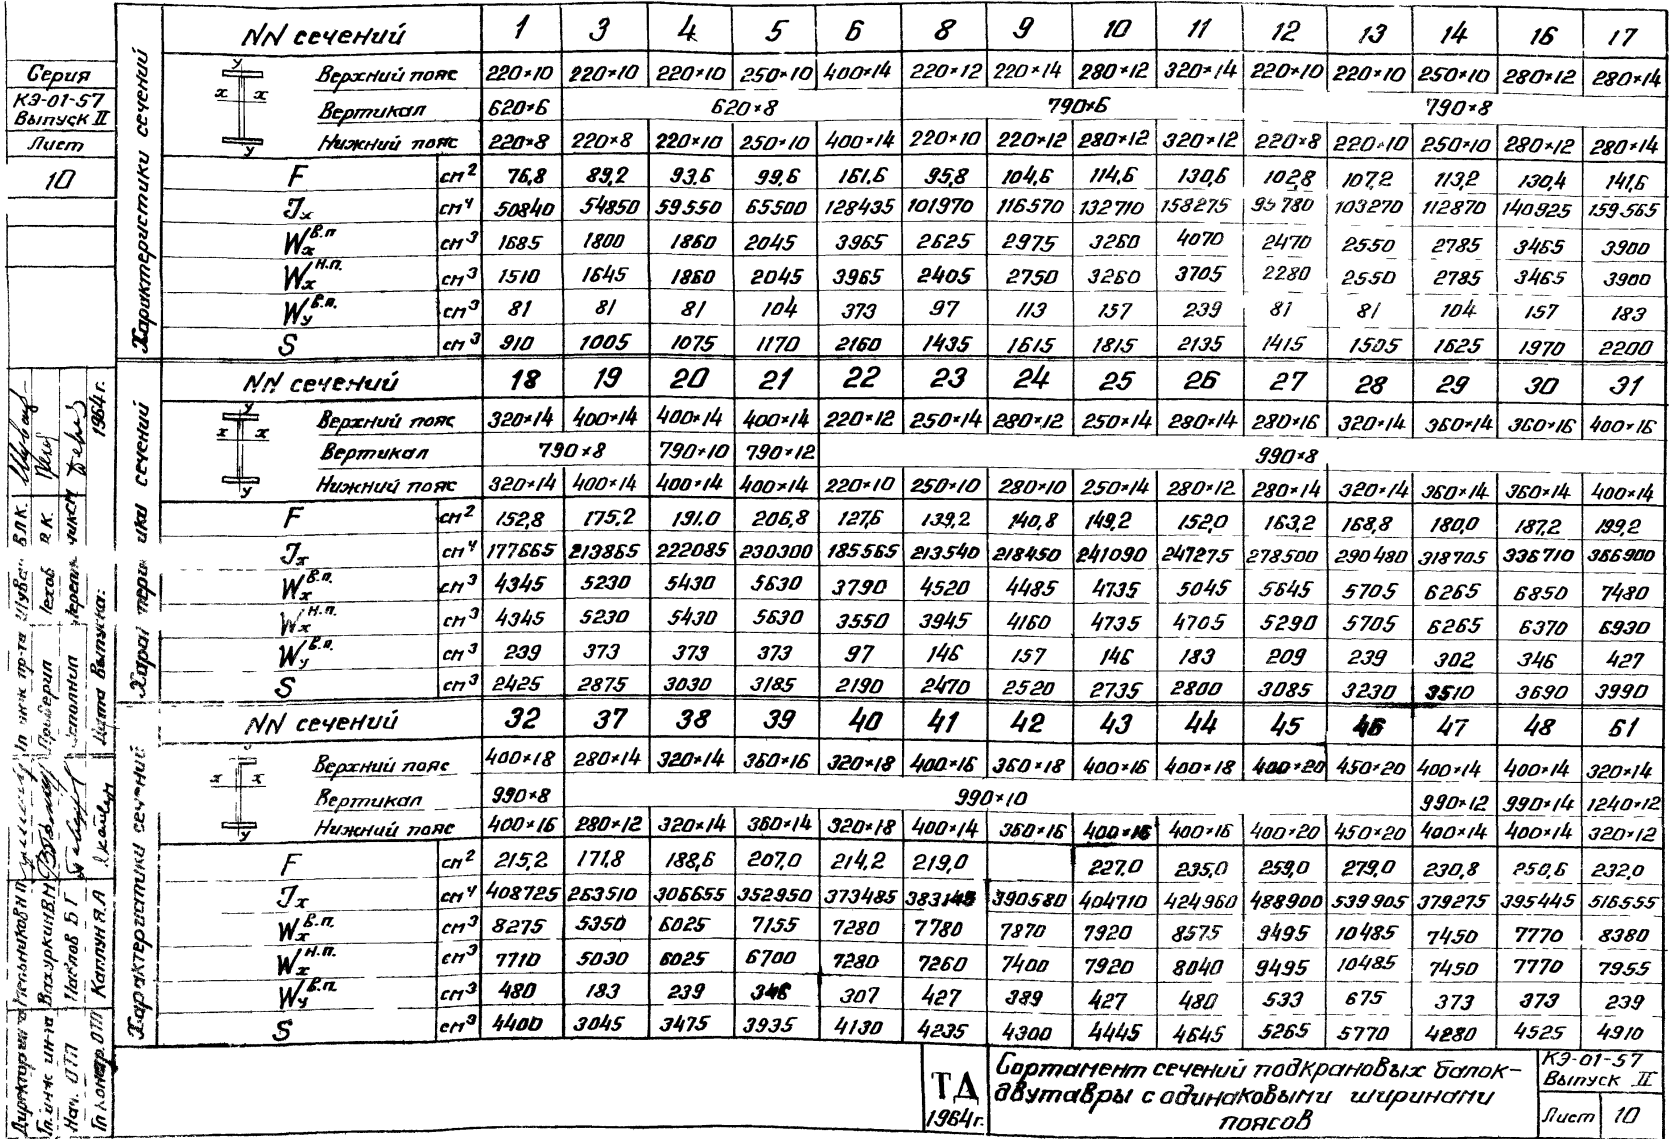 Серия
КЭ-01-57
Выпуск II
Лист
10
Характеристики сечений
NN сечений 1 3 4 5 6 8 9 10 11 12 13 14 16 17
Верхний пояс 220×10 220×10 220×10 250×10 400×14 220×12 220×14 280×12 320×14 220×10 220×10 250×10 280×12 280×14
Вертикал 620×6 620×8 790×6 790×8
Нижний пояс 220×8 220×8 220×10 250×10 400×14 220×10 220×12 280×12 320×12 220×8 220×10 250×10 280×12 280×14
F см² 76,8 89,2 93,6 99,6 161,6 95,8 104,6 114,6 130,6 102,8 107,2 113,2 130,4 141,6
Jx см⁴ 50840 54850 59550 65500 128435 101970 116570 132710 158275 95780 103270 112870 140925 159565
Wx в.п см³ 1685 1800 1860 2045 3965 2625 2975 3260 4070 2470 2550 2785 3465 3900
Wx н.п. см³ 1510 1645 1860 2045 3965 2405 2750 3260 3705 2280 2550 2785 3465 3900
Wy в.п. см³ 81 81 81 104 373 97 113 157 239 81 81 104 157 183
S см³ 910 1005 1075 1170 2160 1435 1615 1815 2135 1415 1505 1625 1970 2200
NN сечений 18 19 20 21 22 23 24 25 26 27 28 29 30 31
Верхний пояс 320×14 400×14 400×14 400×14 220×12 250×14 280×12 250×14 280×14 280×16 320×14 360×14 360×16 400×16
Вертикал 790×8 790×10 790×12 990×8
Нижний пояс 320×14 400×14 400×14 400×14 220×10 250×10 280×10 250×14 280×12 280×14 320×14 360×14 360×14 400×14
F см² 152,8 175,2 191.0 206,8 127,6 139,2 140,8 149,2 152,0 163,2 168,8 180,0 187,2 199,2
Jx см⁴ 177665 213865 222085 230300 185565 213540 218450 241090 247275 278500 290480 318705 336710 366900
Wx в.п. см³ 4345 5230 5430 5630 3790 4520 4485 4735 5045 5645 5705 6265 6850 7480
Wx н.п. см³ 4345 5230 5430 5630 3550 3945 4160 4735 4705 5290 5705 6265 6370 6930
Wy в.п. см³ 239 373 373 373 97 146 157 146 183 209 239 302 346 427
S см³ 2425 2875 3030 3185 2190 2470 2520 2735 2800 3085 3230 3510 3690 3990
Характеристика сечений
NN сечений 32 37 38 39 40 41 42 43 44 45 46 47 48 61
Верхний пояс 400×18 280×14 320×14 360×16 320×18 400×16 360×18 400×16 400×18 400×20 450×20 400×14 400×14 320×14
Вертикал 990×8 990×10 990×12 990×14 1240×12
Нижний пояс 400×16 280×12 320×14 360×14 320×18 400×14 360×16 400×16 400×16 400×20 450×20 400×14 400×14 320×12
F см² 215,2 171,8 188,6 207,0 214,2 219,0 227,0 235,0 259,0 279,0 230,8 250,6 232,0
Jx см⁴ 408725 263510 306655 352950 373485 383145 390580 404710 424960 488900 539905 379275 395445 516555
Wx в.п. см³ 8275 5350 6025 7155 7280 7780 7870 7920 8575 9495 10485 7450 7770 8380
Wx н.п. см³ 7710 5030 6025 6700 7280 7260 7400 7920 8040 9495 10485 7450 7770 7955
Wy в.п. см³ 480 183 239 346 307 427 389 427 480 533 675 373 373 239
S см³ 4400 3045 3475 3935 4130 4235 4300 4445 4645 5265 5770 4280 4525 4910
1964г.
Дата выпуска:
Нач. ОТП Павлов Б Г
ТД
1964г.
Сортамент сечений подкрановых балок-
двутавры с одинаковыми ширинами
поясов
КЭ-01-57
Выпуск II
Лист 10